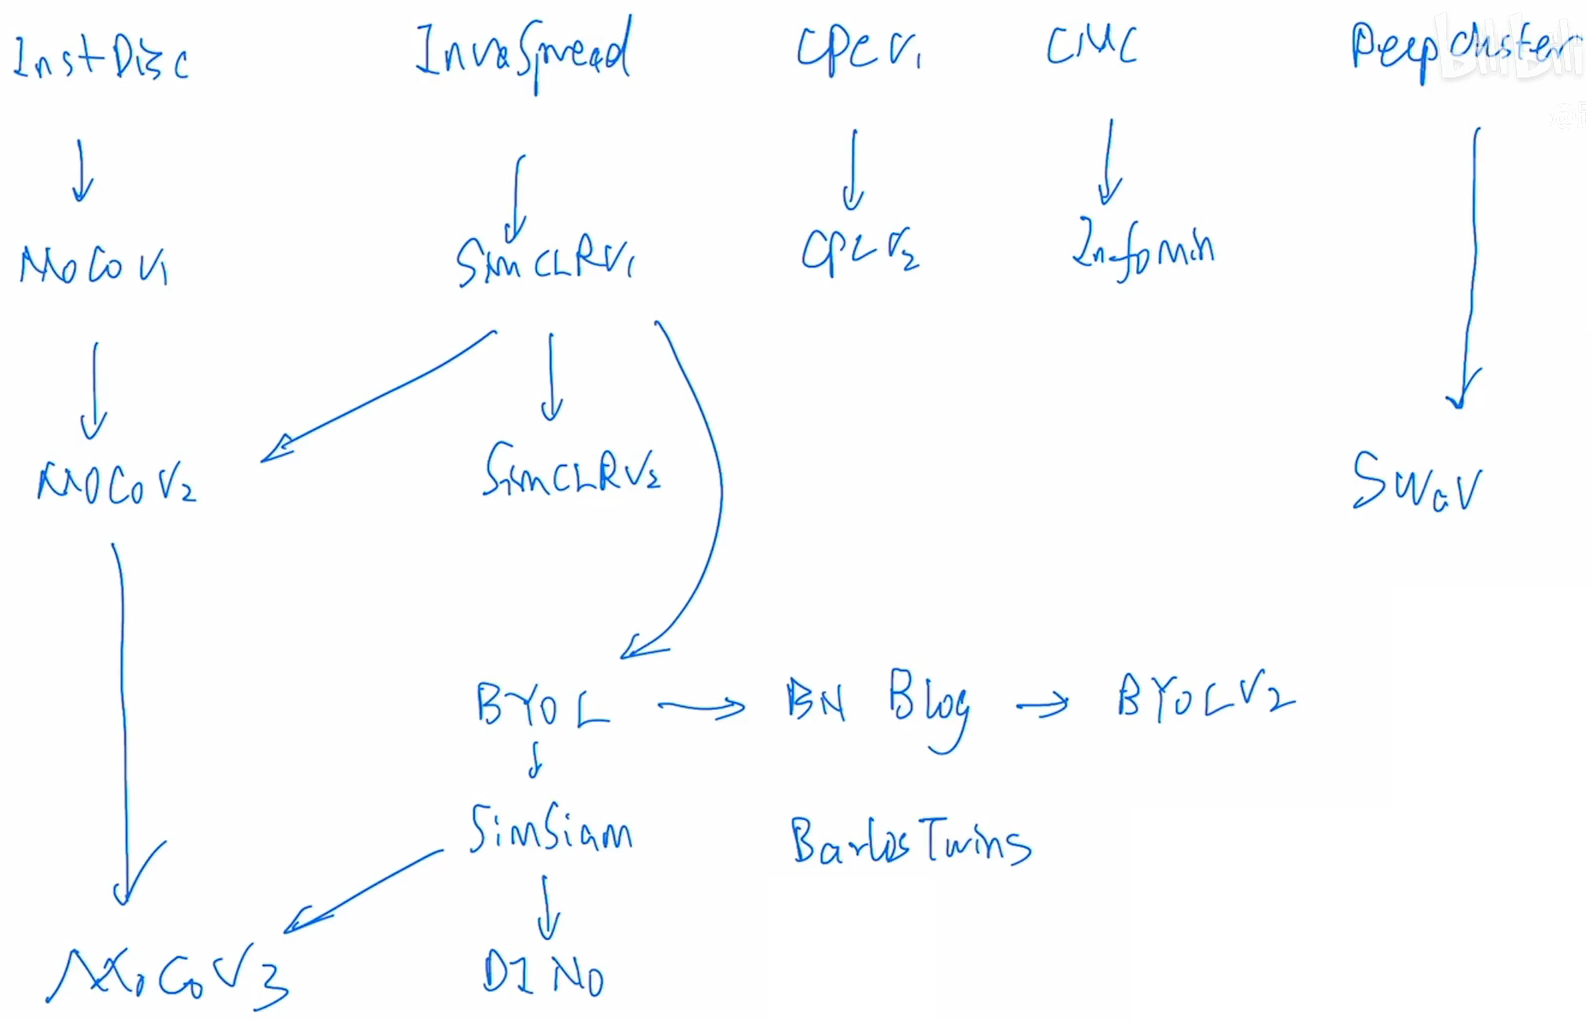 InstDisc InvaSpread CPC V1 CMC DeepCluster
MoCo V1 SimCLR V1 CPC V2 Infomin
MoCo V2 SimCLR V2 SwaV
BYOL BN Blog BYOL V2
SimSiam Barlos Twins
MoCo V3 DINO
bilibili